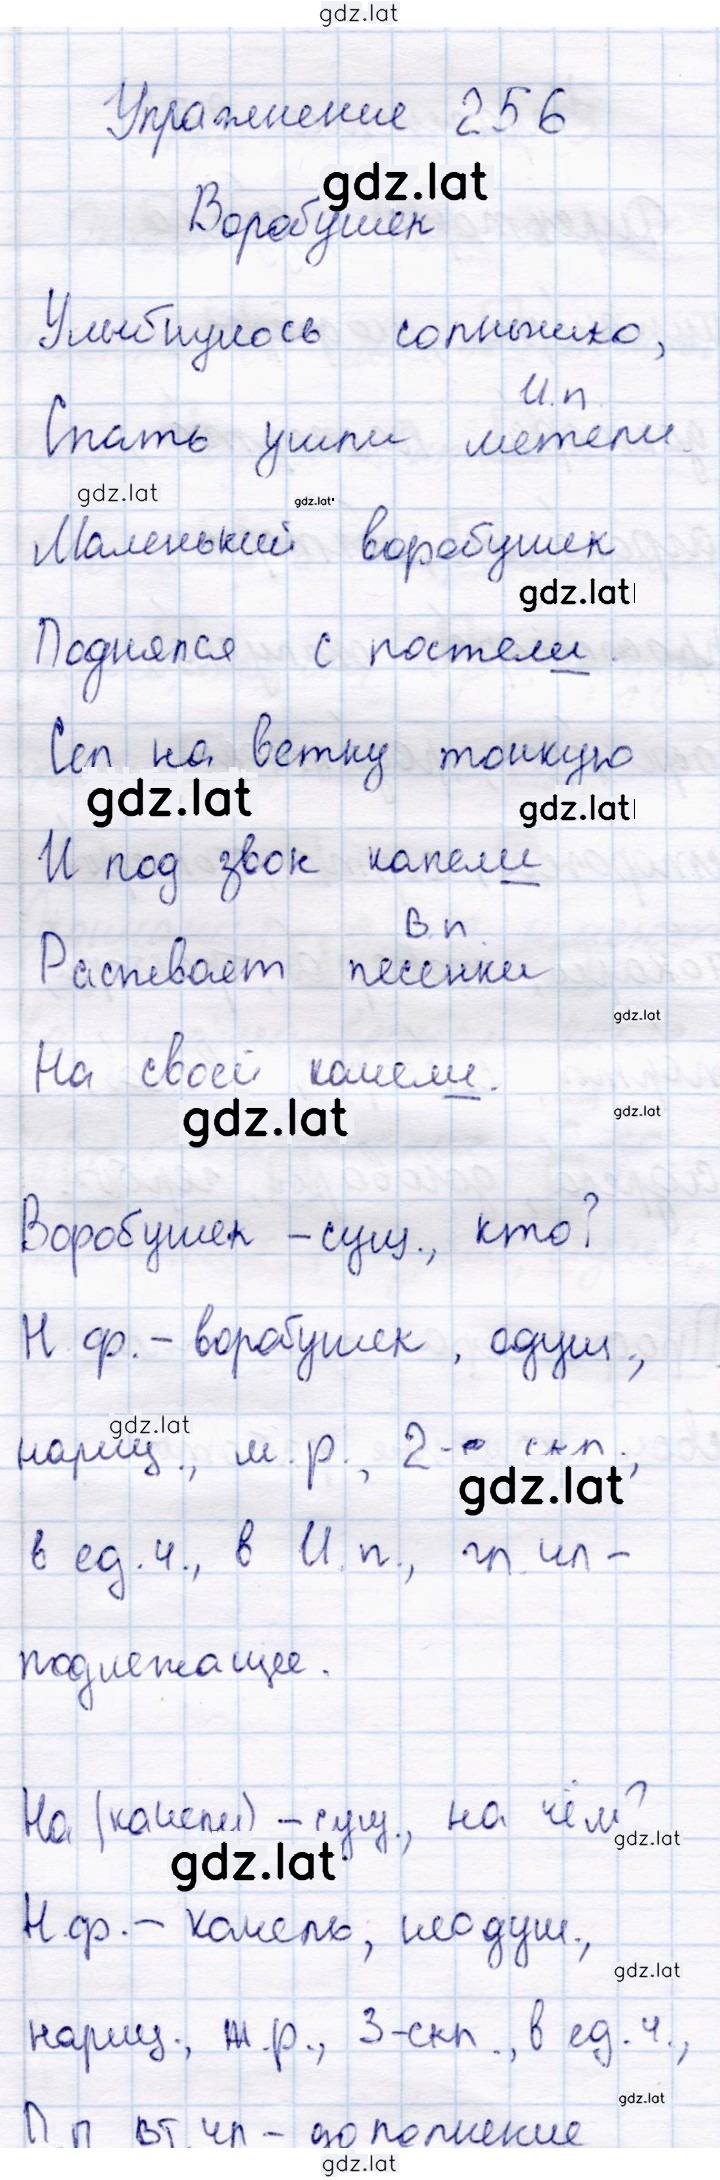 gdz.lat
Упражнение 256
gdz.lat
Воробушек
Улыбнулось солнышко,
И.п.
Спать ушли метели.
gdz.lat gdz.lat
Маленький воробушек
gdz.lat
Поднялся с постели.
Сел на ветку тонкую
gdz.lat gdz.lat
И под звон капели
В.п.
Распевает песенки
gdz.lat
На своей качели.
gdz.lat gdz.lat
Воробушек – сущ., кто?
Н.ф. – воробушек, одуш.,
gdz.lat
нариц., м.р., 2-е скл.,
gdz.lat
в ед.ч., в И.п., гл. чл –
подлежащее.
На (качели) – сущ., на чём?
gdz.lat gdz.lat
Н.ф. – качель, неодуш.,
gdz.lat
нариц., ж.р., 3-скл., в ед.ч.,
gdz.lat
П.п вт. чл – дополнение
gdz.lat